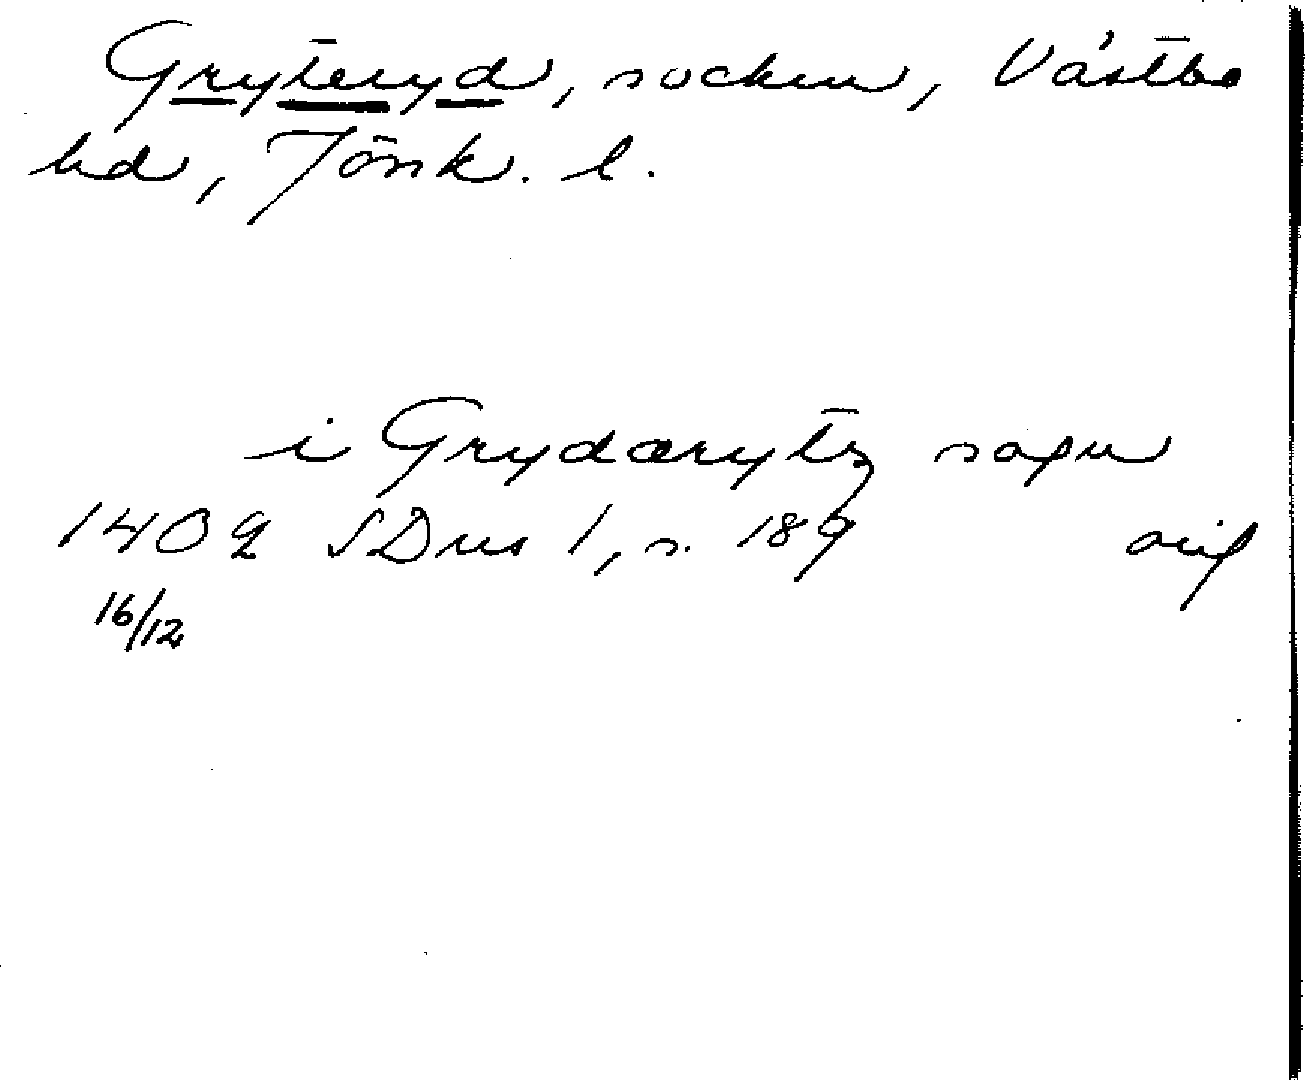 Gryteryd, socken, Västbo
hd, Jönk. l.
i Grydærytz sogn
1402 SDns 1, s. 189 orig
16/12